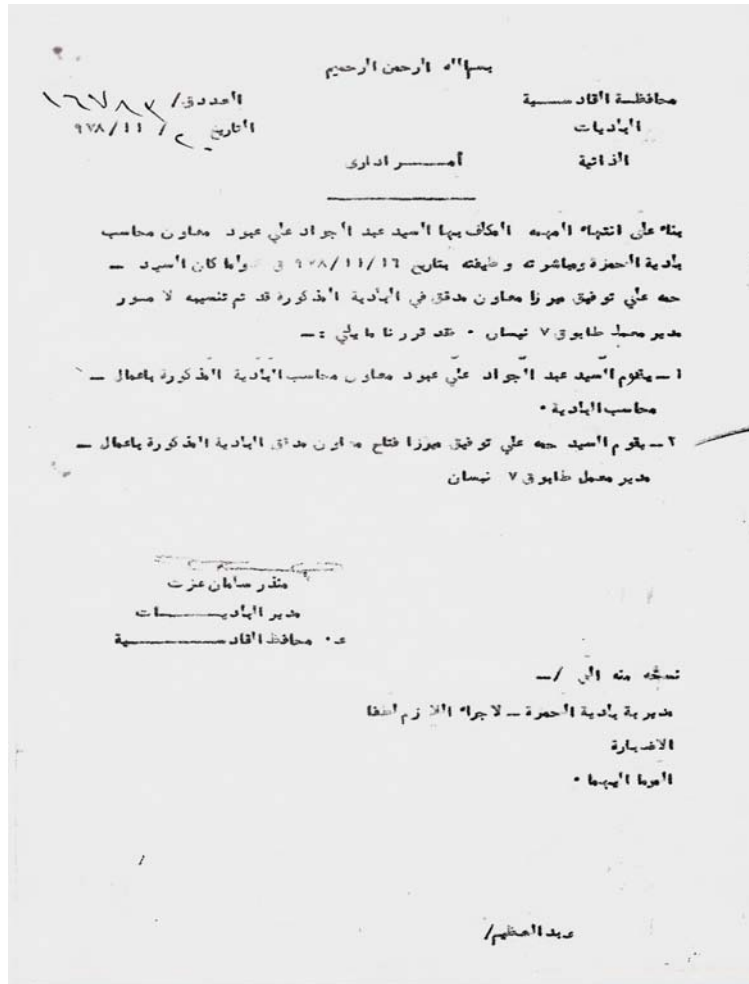 بسم الله الرحمن الرحيم
محافظة القادسية العدد ق/ ١٦٧٨٣
البلديات التاريخ ٢٠/١١/٩٧٨
الذاتية أمـــر ادارى
بناء على انتهاء المهمه المكلف بها السيد عبد الجواد علي عبود معاون محاسب
بلدية الحمزة ومباشرته وظيفته بتاريخ ٩٧٨/١١/١٦ ولما كان السيد ــ
حمه علي توفيق ميرزا معاون مدقق في البلدية المذكورة قد تم تنسيبه لامور
مدير معمل طابوق ٧ نيسان ٠ فقد قررنا مايلي :ــ
١ ــ يقوم السيد عبد الجواد علي عبود معاون محاسب البلدية المذكورة باعمال ــ
محاسب البلدية ٠
٢ ــ يقوم السيد حمه علي توفيق ميرزا فتاح معاون مدقق البلدية المذكورة باعمال ــ
مدير معمل طابوق ٧ نيسان
منذر سلمان عزت
مدير البلديــــات
ع٠ محافظ القادســـية
نسخه منه الى /ــ
مديرية بلدية الحمزة ــ لاجراء اللازم لطفا
الاضبارة
المومأ اليهما ٠
عبد العظيم/